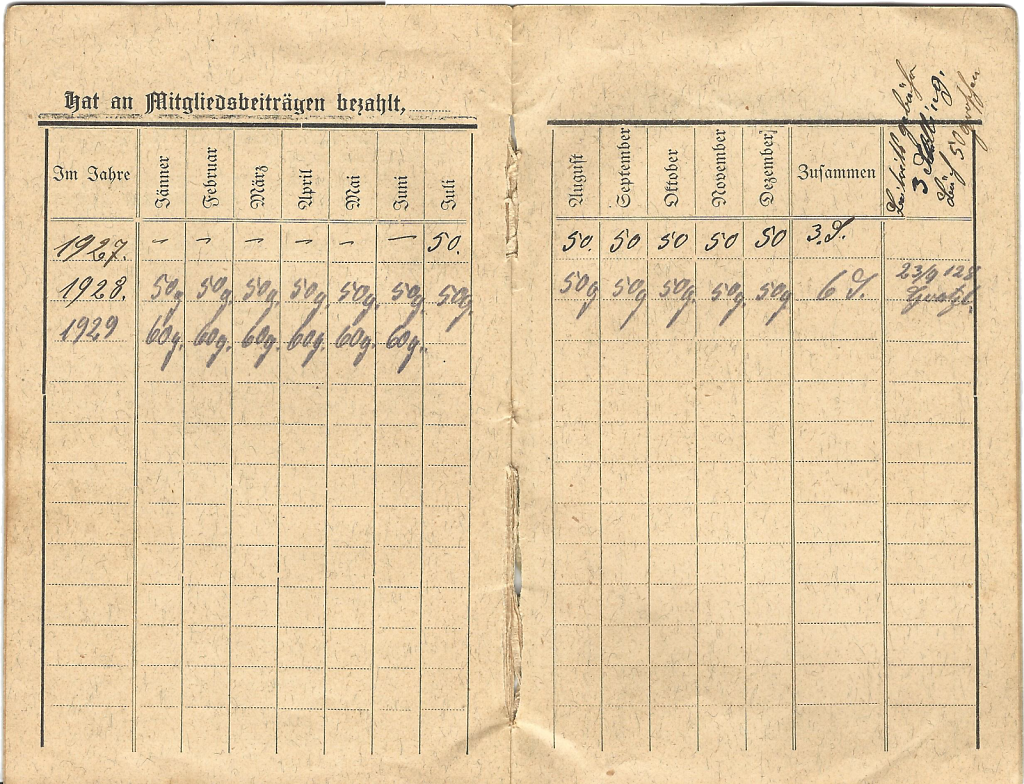 Hat an Mitgliedsbeiträgen bezahlt,
Im Jahre Jänner Februar März April Mai Juni Juli August September Oktober November Dezember Zusammen
3 Schilling.
50 Groschen
1927. – – – – – – 50. 50. 50 50 50 50 3.S.
1928. 50g 50g. 50g. 50g. 50g. 50g. 50g. 50g 50g. 50g. 50g. 50g. 6 S. 23/9 128
1929 60g. 60g. 60g. 60g. 60g. 60g.